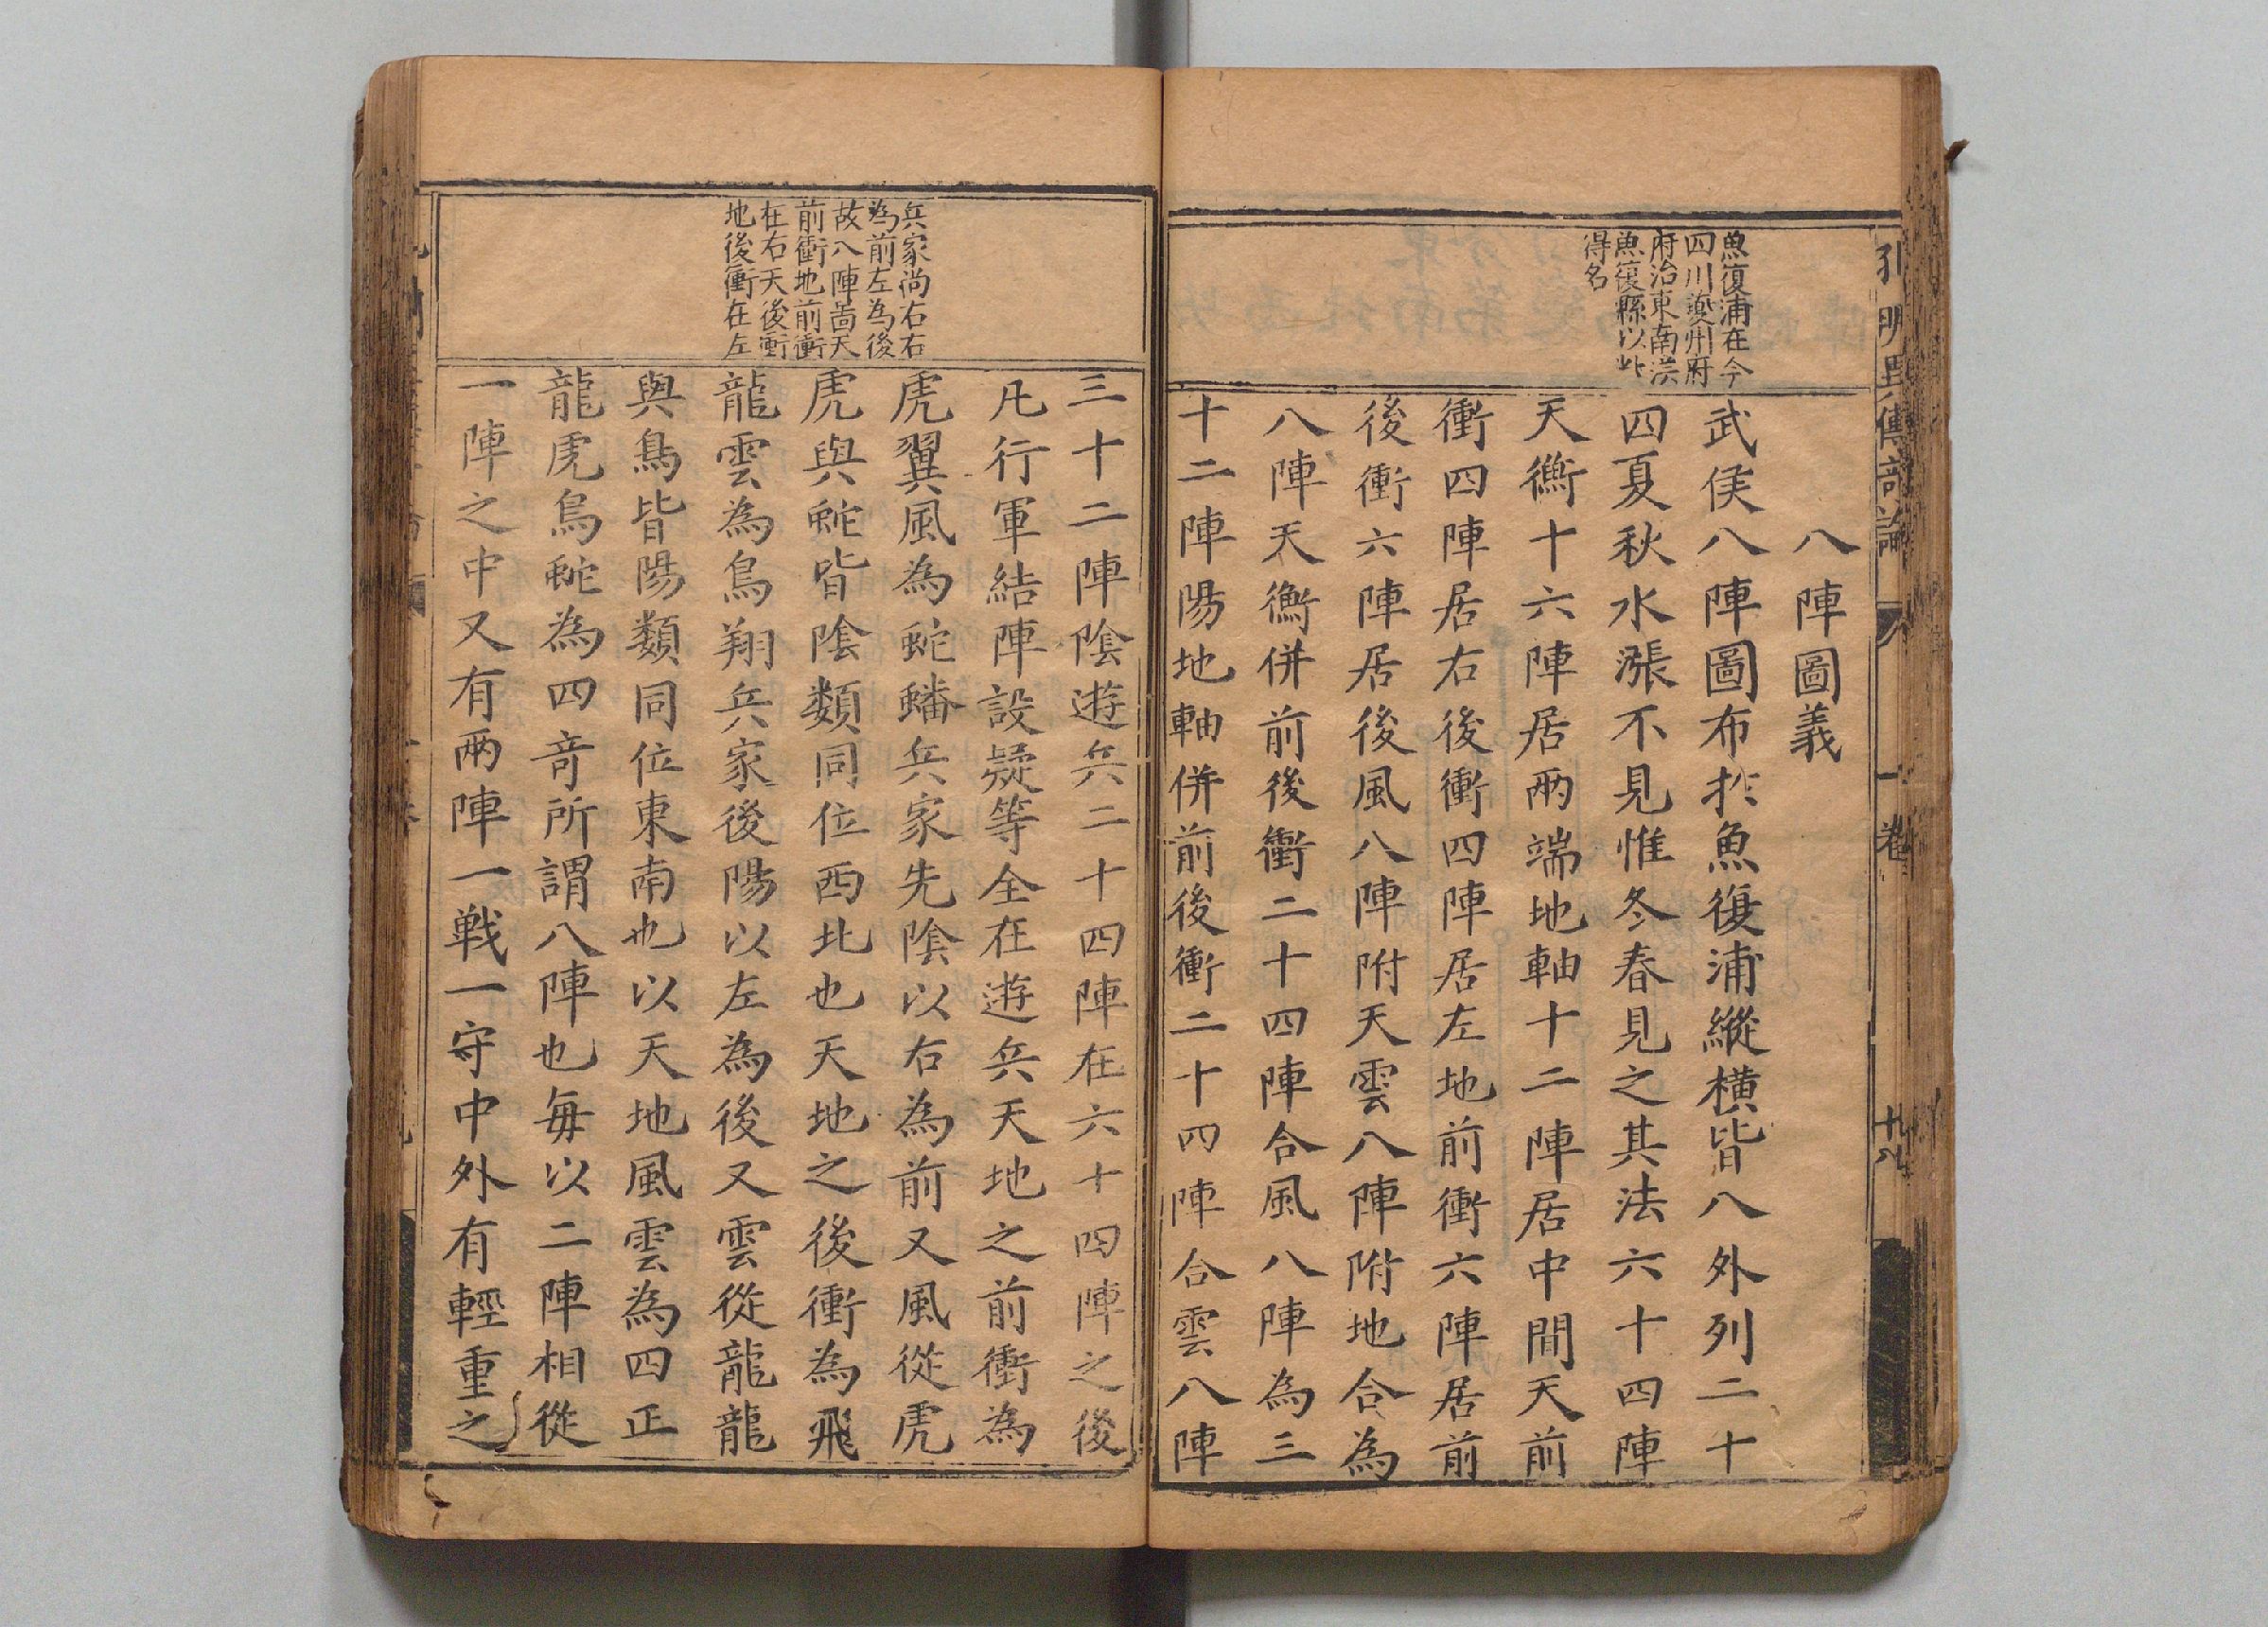 魚復浦在今
四川夔州府
府治東南漢
魚復縣以此
得名
八陣圖義
武侯八陣圖布扵魚復浦縱橫皆八外列二十
四夏秋水漲不見惟冬春見之其法六十四陣
天衡十六陣居兩端地軸十二陣居中間天前
衝四陣居右後衝四陣居左地前衝六陣居前
後衝六陣居後風八陣附天雲八陣附地合為
八陣天衡併前後衝二十四陣合風八陣為三
十二陣陽地軸併前後衝二十四陣合雲八陣
兵家尚右右
為前左為後
故八陣啚天
前衝地前衝
在右天後衝
地後衝在左
三十二陣陰遊兵二十四陣在六十四陣之後
凡行軍結陣設疑等全在遊兵天地之前衝為
虎翼風為蛇蟠兵家先陰以右為前又風從虎
虎與蛇皆陰類同位西北也天地之後衝為飛
龍雲為鳥翔兵家後陽以左為後又雲從龍龍
與鳥皆陽類同位東南也以天地風雲為四正
龍虎鳥蛇為四竒所謂八陣也每以二陣相從
一陣之中又有兩陣一戰一守中外有輕重之
一卷
十八